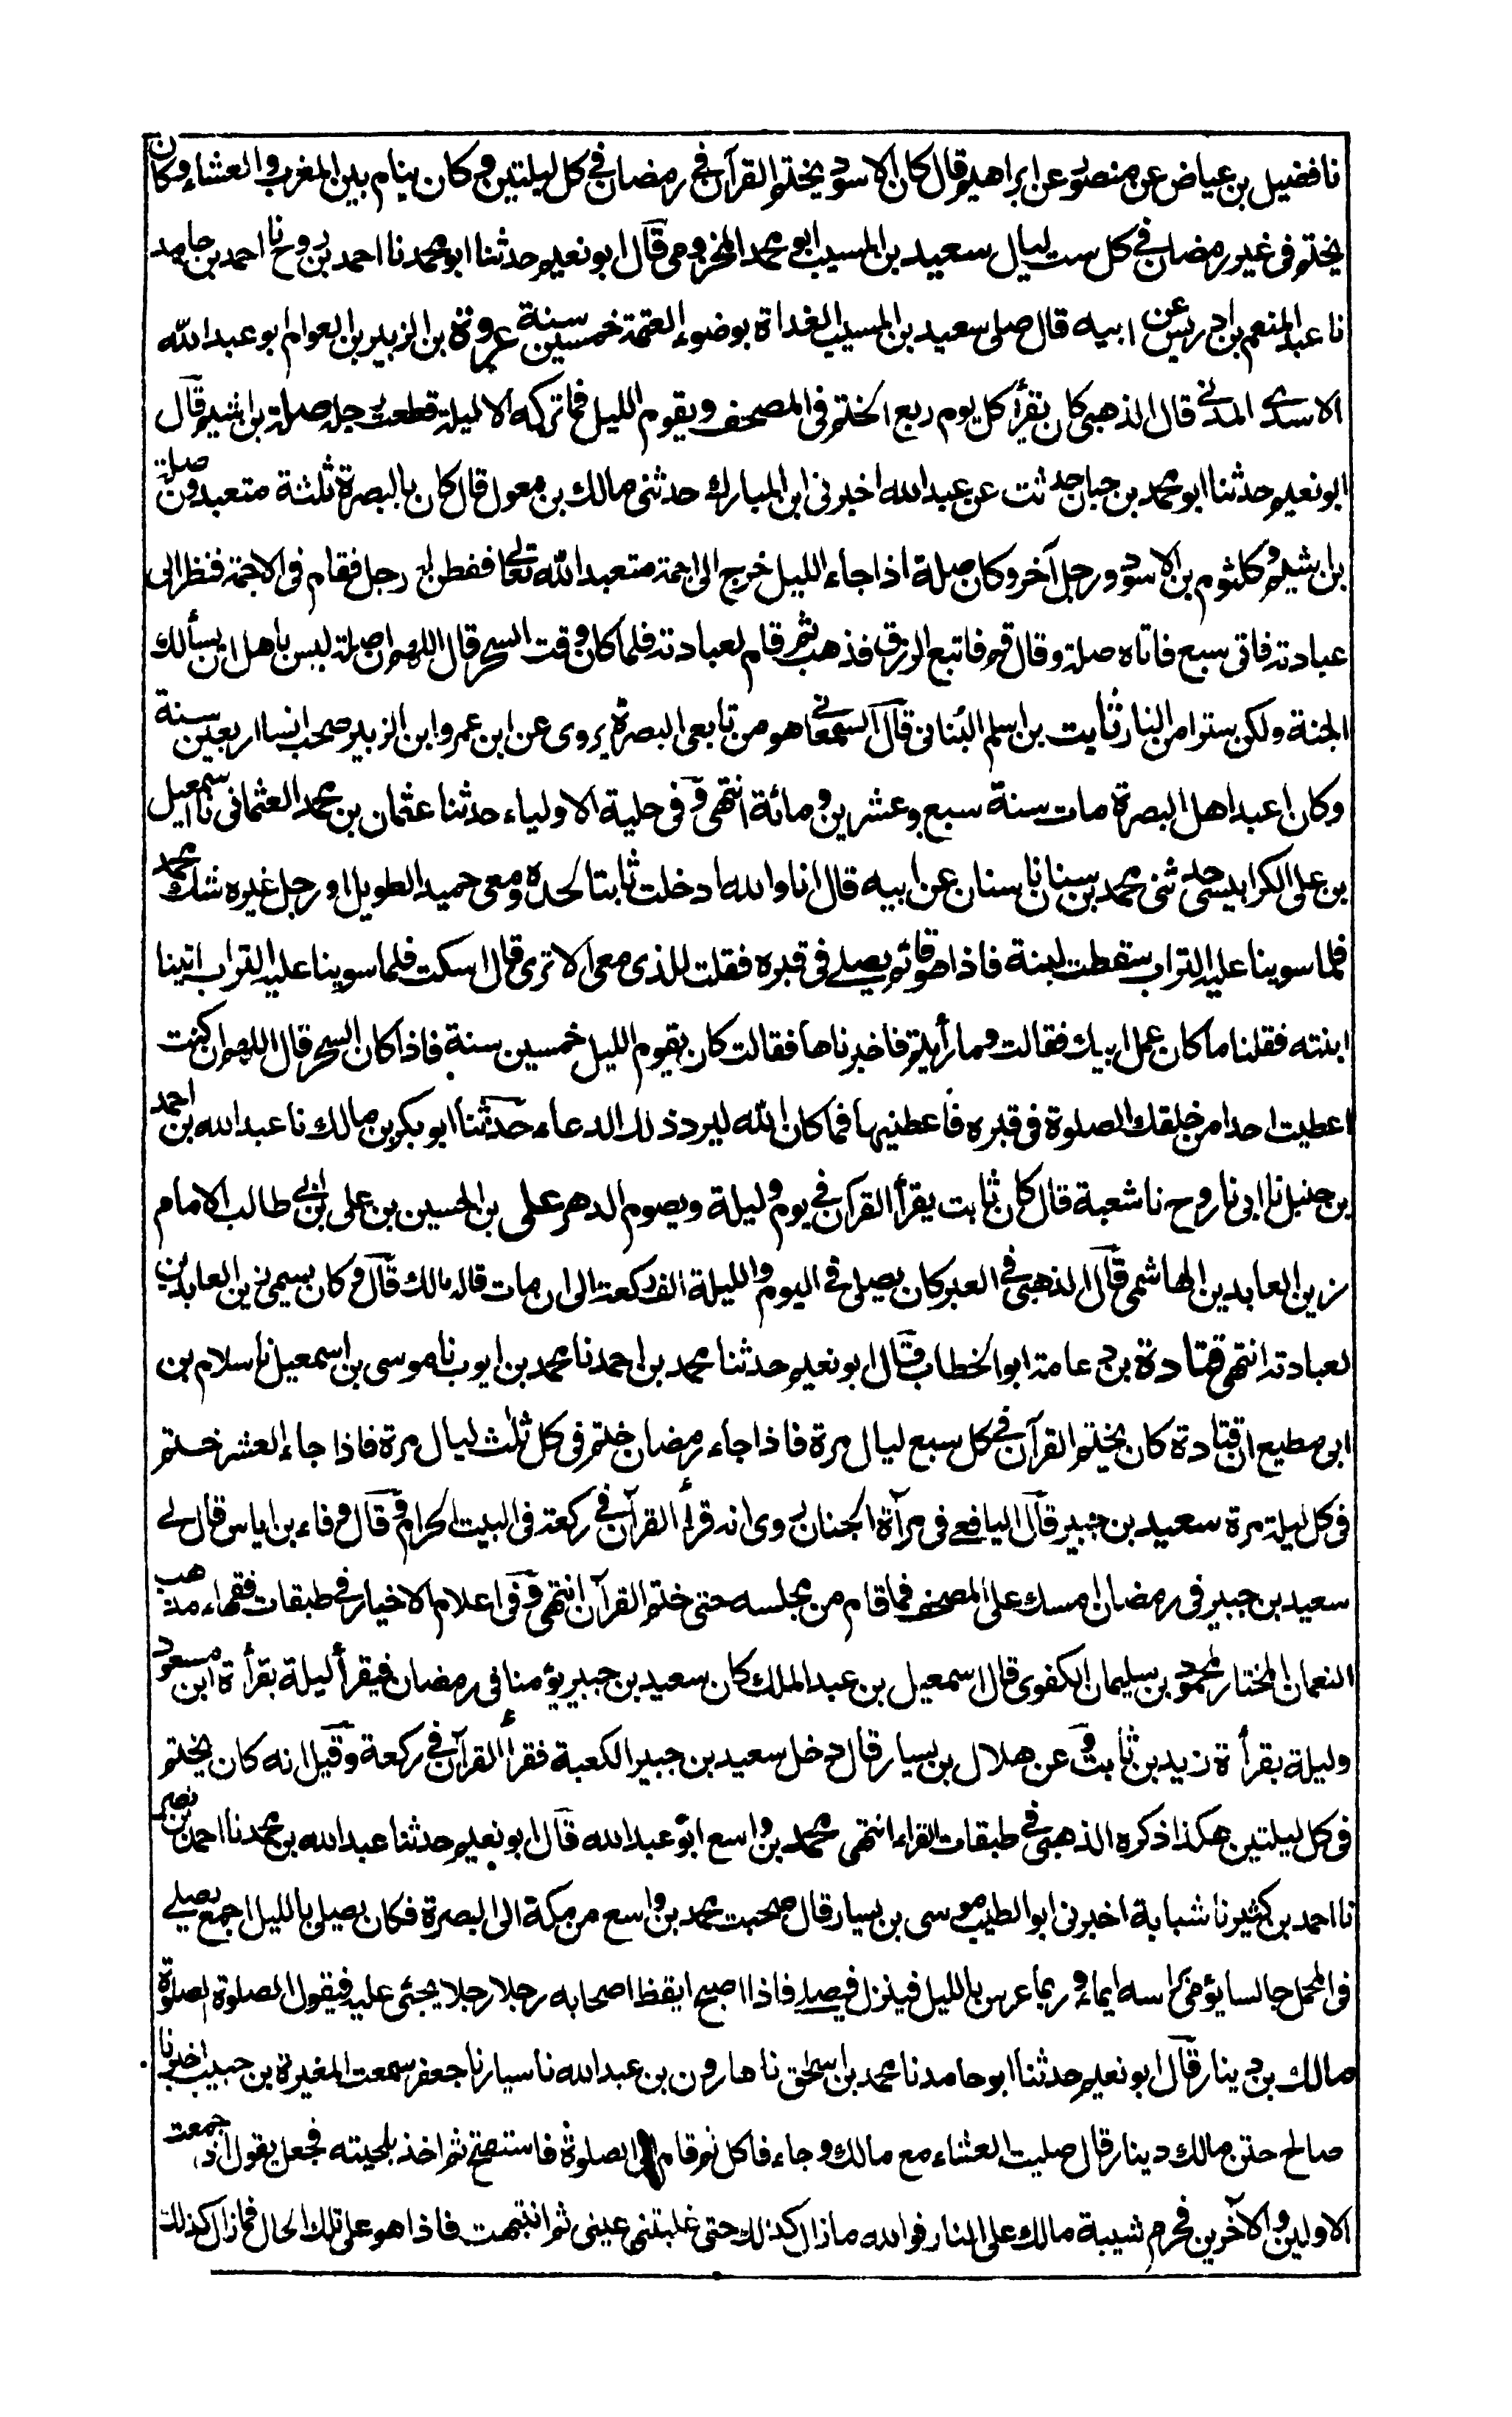 نا فضيل بن عياض عن منصور عن ابراهيم قال كان الاسود يختم القرآن في رمضان في كل ليلتين وكان ينام بين المغرب والعشاء وكان
يختم في غير رمضان في كل ست ليال سعيد بن المسيب ابو محمد المخزومي قال ابو نعيم حدثنا ابو محمد نا احمد بن روح نا احمد بن حامد
نا عبد المنعم بن ادريس عن ابيه قال صلى سعيد بن المسيب الغداة بوضوء العتمة خمسين سنة عروة بن الزبير بن العوام ابو عبد الله
الاسدي المدني قال الذهبي كان يقرأ كل يوم ربع الختم في المصحف ويقوم الليل فما تركه الا ليلة قطعت رجله صلة بن اشيم قال
ابو نعيم حدثنا ابو محمد بن حبان حدثت عن عبد الله اخبرني ابن المبارك حدثني مالك بن معول قال كان بالبصرة ثلثة متعبدون صلة
بن اشيم وكلثوم بن الاسود ورجل آخر وكان صلة اذا جاء الليل خرج الى اجمة متعبد الله تعالى ففطن له رجل فقام في الاجمة فنظر الى
عبادته فاتى سبع فاتاه صلة وقال قم فاتبع الرزق فذهب ثم قام لعبادته فلما كان وقت السحر قال اللهم ان صلة ليس باهل ان يسألك
الجنة ولكن سترا من النار ثابت بن اسلم البناني قال السمعاني هو من تابعي البصرة يروى عن ابن عمر وابن الزبير صحب انسا اربعين سنة
وكان اعبد اهل البصرة مات سنة سبع وعشرين ومائة انتهى وفي حلية الاولياء حدثنا عثمان بن محمد العثماني نا اسمعيل
بن على الكرابيسى حدثني محمد بن سنان نا سنان عن ابيه قال انا والله ادخلت ثابتا لحده ومعى حميد الطويل او رجل غيره شك محمد
فلما سوينا عليه التراب سقطت لبنة فاذا هو قائم يصلى في قبره فقلت للذى معى الا ترى قال اسكت فلما سوينا عليه التراب اتينا
ابنته فقلنا ما كان عمل ابيك فقالت وما رأيتم فاخبرناها فقالت كان يقوم الليل خمسين سنة فاذا كان السحر قال اللهم ان كنت
اعطيت احدا من خلقك الصلوة في قبره فأعطنيها فما كان الله ليرد ذلك الدعاء حدثنا ابو بكر بن مالك نا عبد الله بن احمد
بن حنبل نا ابى نا روح نا شعبة قال كان ثابت يقرأ القرآن في يوم وليلة ويصوم الدهر على بن الحسين بن على بن ابي طالب الامام
زين العابدين الهاشمى قال الذهبى في العبر كان يصلى في اليوم والليلة الف ركعة الى ان مات قاله مالك قال وكان يسمى زين العابدين
لعبادته انتهى قتادة بن دعامة ابو الخطاب قال ابو نعيم حدثنا محمد بن احمد نا محمد بن ايوب نا موسى بن اسمعيل نا سلام بن
ابى مطيع ان قتادة كان يختم القرآن في كل سبع ليال مرة فاذا جاء رمضان ختم في كل ثلٰث ليال مرة فاذا جاء العشر ختم
في كل ليلة مرة سعيد بن جبير قال اليافعي في مرآة الجنان روى انه قرأ القرآن في ركعة في البيت الحرام وقال وفاء بن اياس قال لي
سعيد بن جبير في رمضان امسك على المصحف فما قام من مجلسه حتى ختم القرآن انتهى وفي اعلام الاخيار في طبقات فقهاء مذهب
النعمان المختار لمحمود بن سليمان الكفوى قال اسمعيل بن عبد الملك كان سعيد بن جبير يؤمنا في رمضان فيقرأ ليلة بقرأة ابن مسعود
وليلة بقرأة زيد بن ثابت وعن هلال بن يسار قال دخل سعيد بن جبير الكعبة فقرأ القرآن في ركعة وقيل انه كان يختم
في كل ليلتين هكذا ذكره الذهبى في طبقات القراء انتهى محمد بن واسع ابو عبد الله قال ابو نعيم حدثنا عبد الله بن محمد نا احمد بن نصر
نا احمد بن كثير نا شبابة اخبرنى ابو الطيب موسى بن يسار قال صحبت محمد بن واسع من مكة الى البصرة فكان يصلى بالليل اجمع يصلي
في المحمل جالسا يؤمى برأسه ايماء وربما عرس بالليل فينزل فيصلى فاذا اصبح ايقظ اصحابه رجلا رجلا يجئى عليه فيقول الصلوة الصلوة
مالك بن دينار قال ابو نعيم حدثنا ابو حامد نا محمد بن اسحق نا هارون بن عبد الله نا سيار نا جعفر سمعت المغيرة بن حبيب اخبرنا
صالح ختن مالك دينار قال صليت العشاء مع مالك وجاء فاكل ثم قام الى الصلوة فاستفتح ثم اخذ بلحيته فجعل يقول اذا جمعت
الاولين والآخرين فحرم شيبة مالك على النار فوالله ما زال كذلك حتى غلبتنى عينى ثم انتبهت فاذا هو على تلك الحال فما زال كذلك